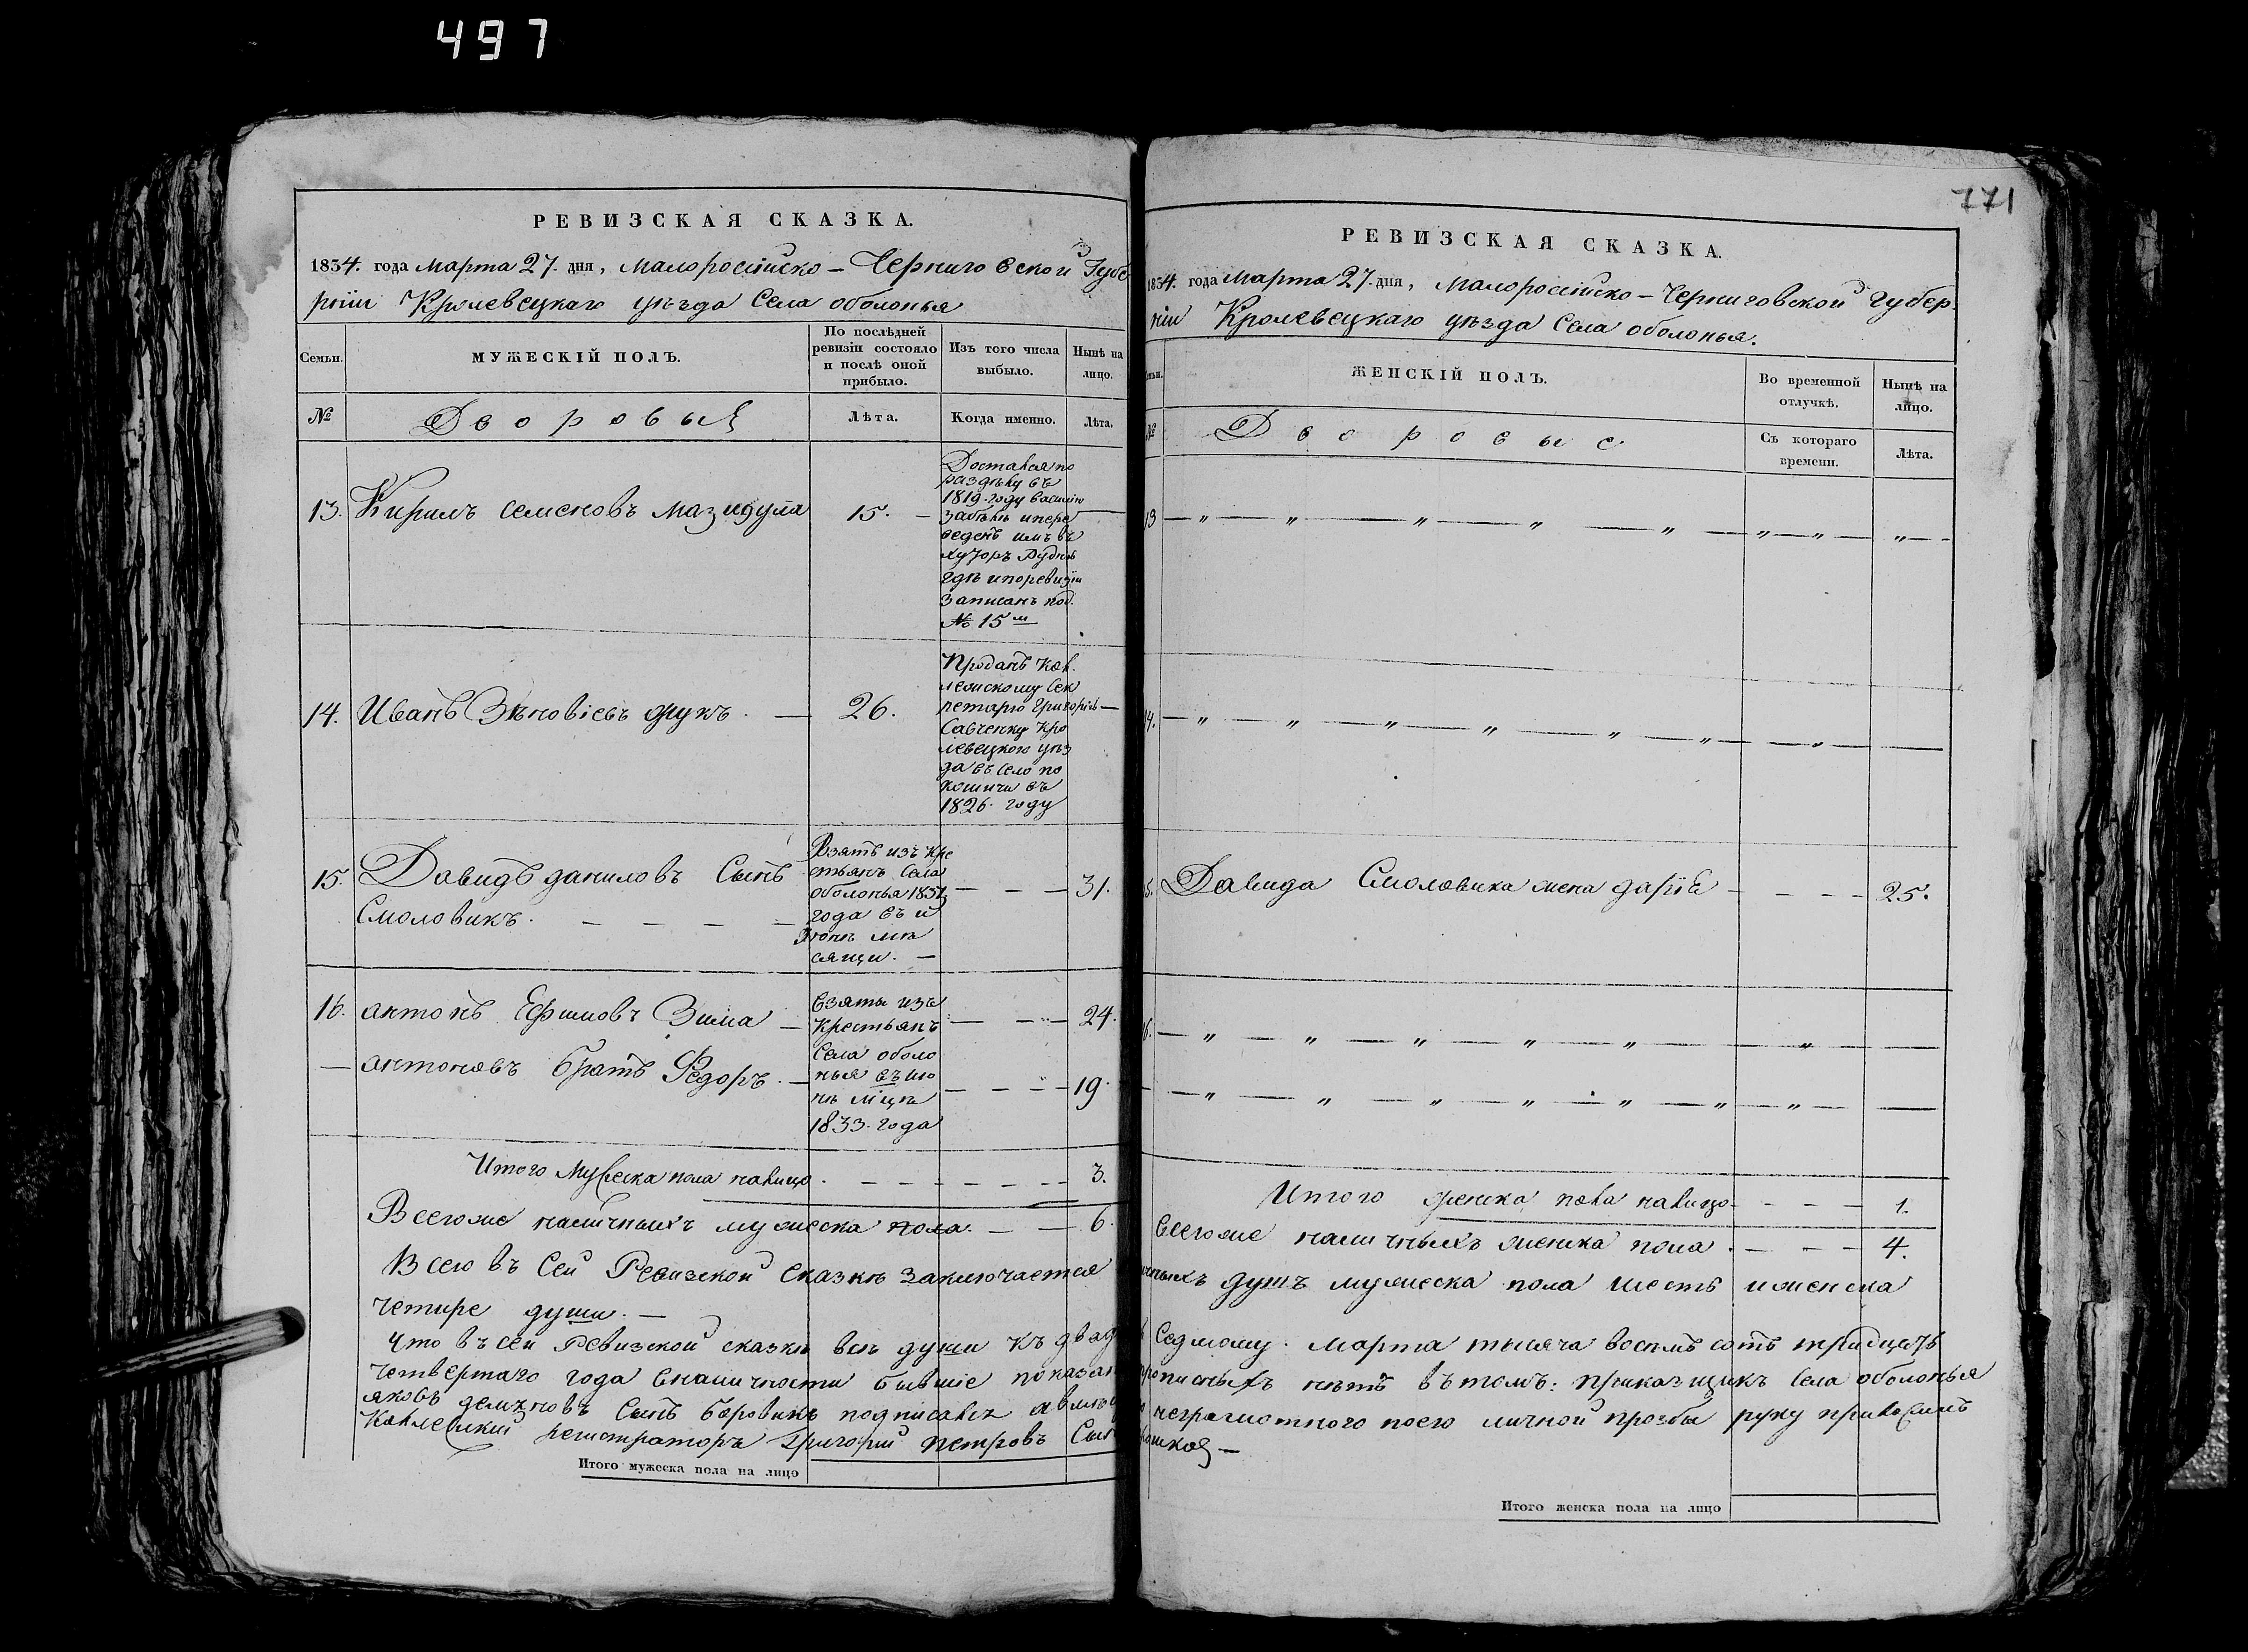 497
771
РЕВИЗСКАЯ СКАЗКА.
1834. года Марта 27. дня, Малоросійско-Черниговской Губе
рніи Кролевецкаго уѣзда Села оболонья
Семьи.
МУЖЕСКІЙ ПОЛЪ.
По послѣдней
ревизіи состояло
и послѣ оной
прибыло.
Изъ того числа
выбыло.
Нынѣ на
лицо.
№
Дворовыя
Лѣта.
Когда именно.
Лѣта.
13. Кирилъ Семеновъ Мазидула
15.
Достался по
раздѣлу въ
1819. году Василію
Забѣлѣ и пере
веденъ имъ въ
хуторъ Рудню
гдѣ и по ревизіи
записанъ под.
№ 15 м
14. Иванъ Зѣновіевъ друкъ.
26.
Проданъ Кол
лежскому Сек
ретарю Григорію
Савченку Кро
левецкого уѣз
да въ село по
кошичи въ
1826. году
15. Давидъ даниловъ Сынъ
Смоловикъ.
Взятъ изъ кре
стьянъ Села
оболонья 1831
года въ и
юнѣ мѣ
сяци.
31.
16. антонъ Ефимовъ Зима
Взяты изъ
крестьянъ
Села оболо
нья въ ию
нѣ мцѣ
1833. года
24.
антоновъ братъ Федоръ.
19.
Итого Мужеска пола налицо.
3.
Всегоже наличныхъ мужеска пола.
6.
Всего въ Сей Ревизской сказкѣ заключается
четире души.
Что въ сей Ревизской сказкѣ всѣ души къ двад
четвертаго года вналичности бывшіе показан
яковъ демяновъ Сынъ боровикъ подписался а вмѣс
Коллежкий регистраторъ Григорий Петровъ Сын
Итого мужеска пола на лицо
РЕВИЗСКАЯ СКАЗКА.
1834. года Марта 27. дня, Малоросійско-Черниговской Губер-
ніи Кролевецкаго уѣзда Села оболонья.
ЖЕНСКІЙ ПОЛЪ.
Во временной
отлучкѣ.
Нынѣ на
лицо.
№
Дворовые
Съ котораго
времени.
Лѣта.
13 — „ — „ — „ — „ — „ — „ — „ — „ —
14. — „ — „ — „ — „ — „ — „ — „ —
Давида Смоловика жена даріѣ
25.
— „ — „ — „ — „ — „ — „ —
— „ — „ — „ — „ — „ — „ — „ —
Итого женска пола налицо
1.
Всегоже наличныхъ женска пола.
4.
чныхъ душъ мужеска пола шесть и женска
Седмому. Марта тысяча восемъ сотъ тридцать
прописныхъ нѣтъ въ томъ: приказщикъ Села оболонья
неграмотного по его личной прозбы руку приложилъ
Итого женска пола на лицо